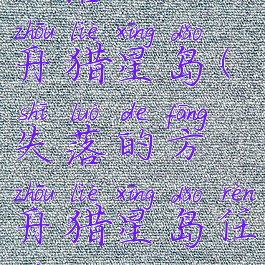 zhōu liè xīng dǎo
舟猎星岛(
shī luò de fāng
失落的方
zhōu liè xīng dǎo rèn
舟猎星岛任